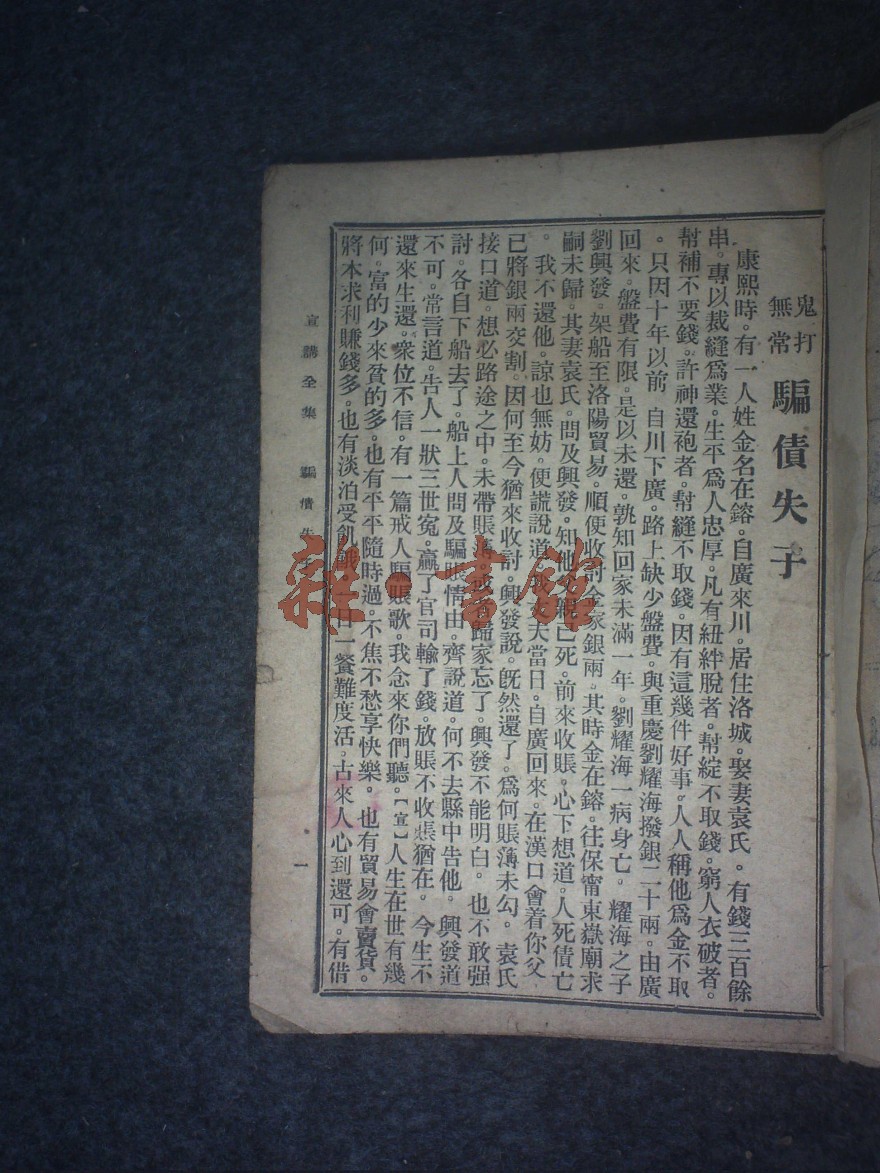 鬼打
無常
騙債失子
康熙時。有一人姓金名在鎔。自廣來川。居住洛城。娶妻袁氏。有錢三百餘
串。專以裁縫爲業。生平爲人忠厚。凡有紐絆脫者。幫綻不取錢。窮人衣破者。
幫補不要錢。許神還袍者。幫縫不取錢。因有這幾件好事。人人稱他爲金不取
。只因十年以前 自川下廣。路上缺少盤費。與重慶劉耀海撥銀二十兩。由廣
回來。盤費有限。是以未還。孰知回家未滿一年。劉耀海一病身亡。耀海之子
劉興發。架船至洛陽貿易。順便收討金家銀兩。其時金在鎔。往保甯東嶽廟求
嗣未歸。其妻袁氏。問及興發。知他父親已死。前來收賬。心下想道。人死債亡
。我不還他。諒也無妨。便謊說道。夫當日。自廣回來。在漢口會着你父。
已將銀兩交割。因何至今猶來收討。興發說。旣然還了。爲何賬薄未勾。袁氏
接口道。想必路途之中。未帶賬薄。或者歸家忘了。興發不能明白。也不敢强
討。各自下船去了。船上人問及騙賬情由。齊說道。何不去縣中告他。興發道
不可。常言道。告人一狀三世寃。贏了官司輸了錢。放賬不收賬猶在。今生不
還來生還。衆位不信。有一篇戒人騙賬歌。我念來你們聽。【宣】人生在世有幾
何。富的少來貧的多。也有平平隨時過。不焦不愁享快樂。也有貿易會賣貨。
將本求利賺錢多。也有淡泊受飢餓。一日一餐難度活。古來人心到還可。有借
宣講全集 騙債失子
一
雜·書舘